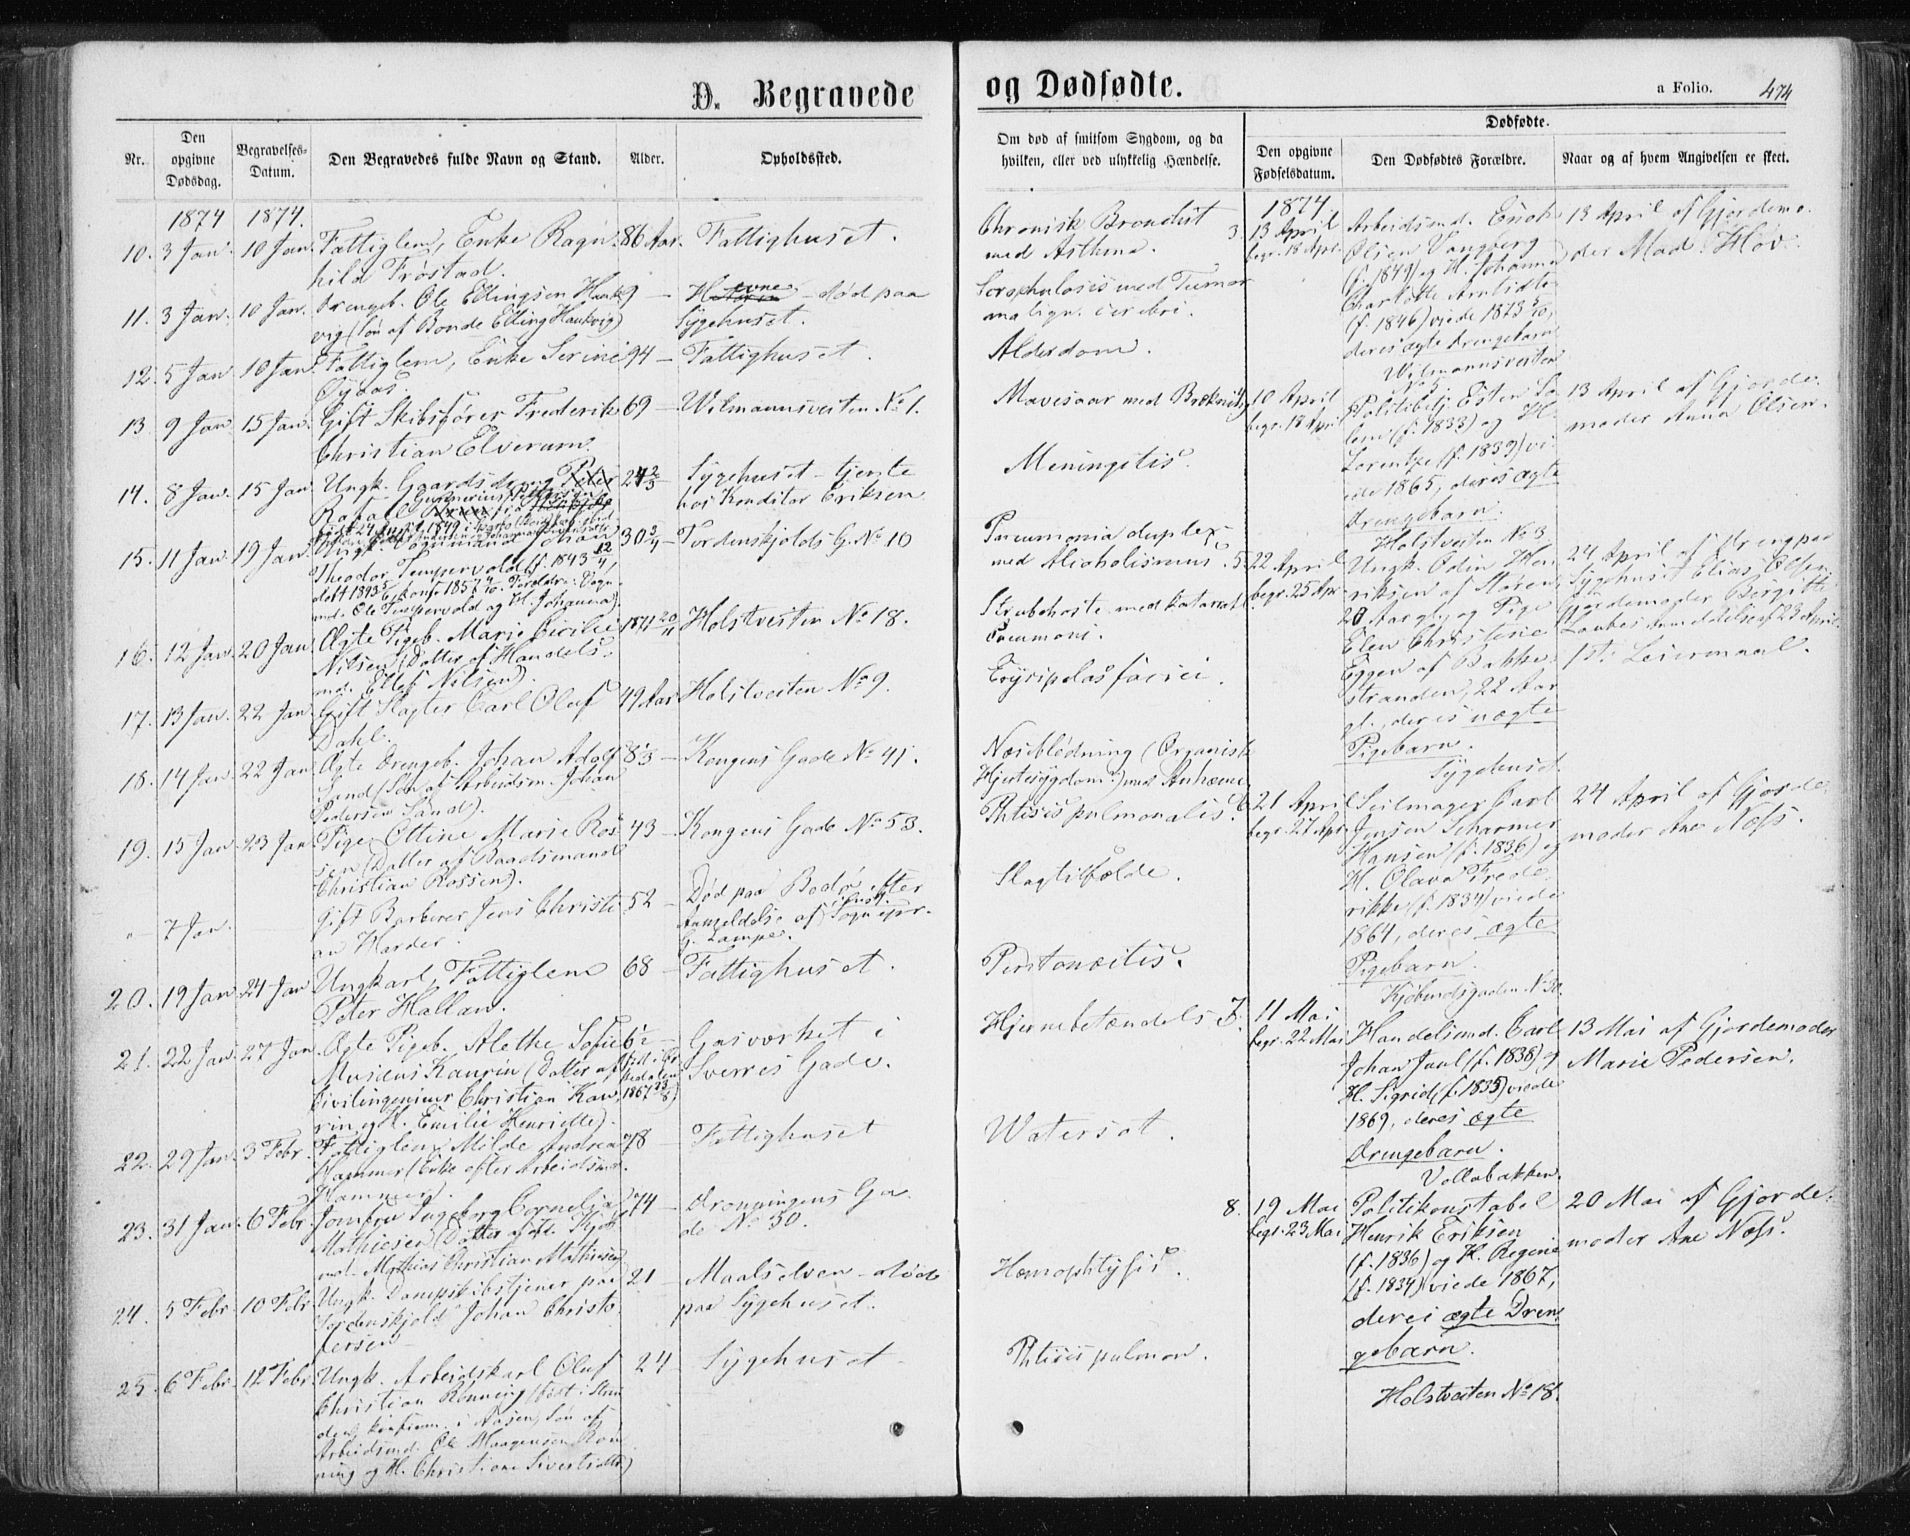 D. Begravede
og Dødsødte.
a Folio. 474
Nr.
Den opgivne Dødsdag.
Begravelses-Datum.
Den Begravedes fulde Navn og Stand.
Alder.
Opholdssted.
Om død af smitsom Sygdom, og da
hvilken, eller ved ulykkelig Hændelse.
Dødfødte.
Den opgivne Fødselsdatum.
Den Dødfødtes Forældre.
Naar og af hvem Angivelsen er skeet.
1874 1874.
10. 3 Jan. 10 Jan. Fattiglem, Enke Ragn- 86 Aar. Fattighuset.
hild Frøstad.
11. 3 Jan. 10 Jan. Drengeb. Ole Ellingsen 9 — død paa
vig (Søn af Bonde Elling Haukvig) Sygehuset.
12. 5 Jan 10 Jan. Fattiglem, Enke Serine 94 — Fattighuset.
13 9 Jan 15 Jan. Gift Skibsfører Frederik 69 — Wilmannsveiten No 1.
Christian Elverum.
14. 8 Jan. 15 Jan Ungk. Gaardsdreng 24 2/3 Sygehuset - tjente
hos Konditor Eriksen
15. 11 Jan. 19 Jan. Ungk. Johan 30 3/4 — Tordenskjolds G. No 10
Theodor Tempervold (f. 1843 12/4,
døbt 1843 konf. 1857 Forældre: Vogn-
md. Ole Tempervold og H. Johanna).
16. 12 Jan. 20 Jan. Ægte Pigeb. Marie Cecilie Holstveiten No 18.
Nilsen (Datter af Handels-
md. Ellef Nilsen).
17. 13 Jan. 22 Jan Gift Slagter Carl Oluf 49 Aar Holstveiten No 9.
Dahl.
18. 14 Jan. 22 Jan Ægte Drengeb. Johan Adolf 8 1/3 — Kongens Gade No 41.
Sand (Søn af Arbeidsm. Johan
Pedersen Sand).
19. 15 Jan 23 Jan Pige Ottine Marie Ros- 43 — Kongens Gade No 53.
sen (Datter af Baadsmand
Christian Rossen).
" 7 Jan. Gift Barberer Jens Christi- 52 — Død paa Bodø efter
an Harder. Anmeldelse af Sognepr.
G. Lampe.
20. 19 Jan. 24 Jan Ungkarl, Fattiglem 68 — Fattighuset.
Peter Hallan.
21. 22 Jan. 27 Jan Ægte Pigeb. Alethe Sofie 6 1/2 — Gasværket i
Musæus Kaurin (Datter af Sverres Gade.
Civilingeniør Christian Kau-
rin og H. Emilie Henriette).
22. 29 Jan. 3 Febr. Fattiglem Molde Andrea 78 — Fattighuset
Hammer (Enke efter Arbeidsmd.
Hammer).
23. 31 Jan. 6 Febr. Jomfru Ingeborg Cornelia 74 — Dronningens Ga-
Mathiesen (Datter af de No 30.
md. Mathias Christian Mathiesen)
24. 5 Febr. 10 Febr. Ungk. Dampskibstjener paa 21 — Maalselven - døde
Tordenskjold Johan Christo- paa Sygehuset.
fersen
25. 6 Febr. 12 Febr. Ungk. Arbeidskarl Oluf 24 Sygehuset
Christian Rønning (født i Strin-
den, konfirm. i Aasen, Søn af
Arbeidsmd. Ole Haagensen Røn-
ning og H. Christiane Sivertsdtr.)
Chronisk Bronchit
med Asthma.
Scrophulosis med Tumor
malign. cerebri.
Alderdom.
Mavesaar med Brækning
Meningitis.
Pneumonia duplex
med Alcoholismus.
Strubehoste med katarrhl.
Pneumoni.
Erysipelas faciei.
Næseblødning (Organisk
Hjertesygdom?) med Anhæmi
Phtisis pulmonalis.
Slagtilfælde.
Peritonæitis.
Hjernebetændelse
Watersot.
Hæmophtysis.
Phtisis pulmon.
1874
3 13 April
begr. 18 Apr.
Arbeidsmd. Enok
Olsen Vangberg
(f. 1849) og H. Johanna
Charlotte Arntsdtr
(f. 1846) viede 1873 5/10,
deres ægte Drengebarn
Wilmannsveiten
13 April af Gjordemo-
der Mad. Hov.
10 April
begr. 18 April
Politibetj. Esten
(f. 1833) og H.
Lorentze (f. 1839) vi-
ede 1865, deres ægte
Drengebarn.
Holstveiten No 3
13 April af Gjorde-
moder Anna Olsen.
5. 22 April
begr. 25 Apr
Ungk. Odin Hen-
riksen af
20 Aar gl. og Pige
Elen Christine
Eggen af Bakke-
stranden, 22 Aar
gl., deres uægte
Pigebarn.
Sygehuset.
24 April af
Sygehuset Elias Olsen
Gjordemoder Bergitte
Anmeldelse af 23 April.
1ste Leiermaal.
6 21 April
begr. 27 Apr.
Seilmager Carl
Jensen Scharmer
Hansen (f. 1836) og
H. Olava Frede-
rikke (f. 1834) viede
1864, deres ægte
Pigebarn.
Kjøbmdsgaden No 30.
24 April af Gjorde-
moder Ane Næss.
7. 11 Mai
begr. 22 Mai
Handelsmd. Carl
Johan Juul (f. 1838) og
H. Sigrid (f. 1835) viede
1869, deres ægte
Drengebarn.
Vollabakken.
13 Mai af Gjordemoder
Marie Pedersen.
8. 19 Mai
begr. 23 Mai
Politikonstabel
Henrik Eriksen
(f. 1836) og H. Regine
(f. 1834) viede 1867,
deres ægte Dren-
gebarn.
Holstveiten No 18.
20 Mai af Gjorde-
moder Ane Næss.